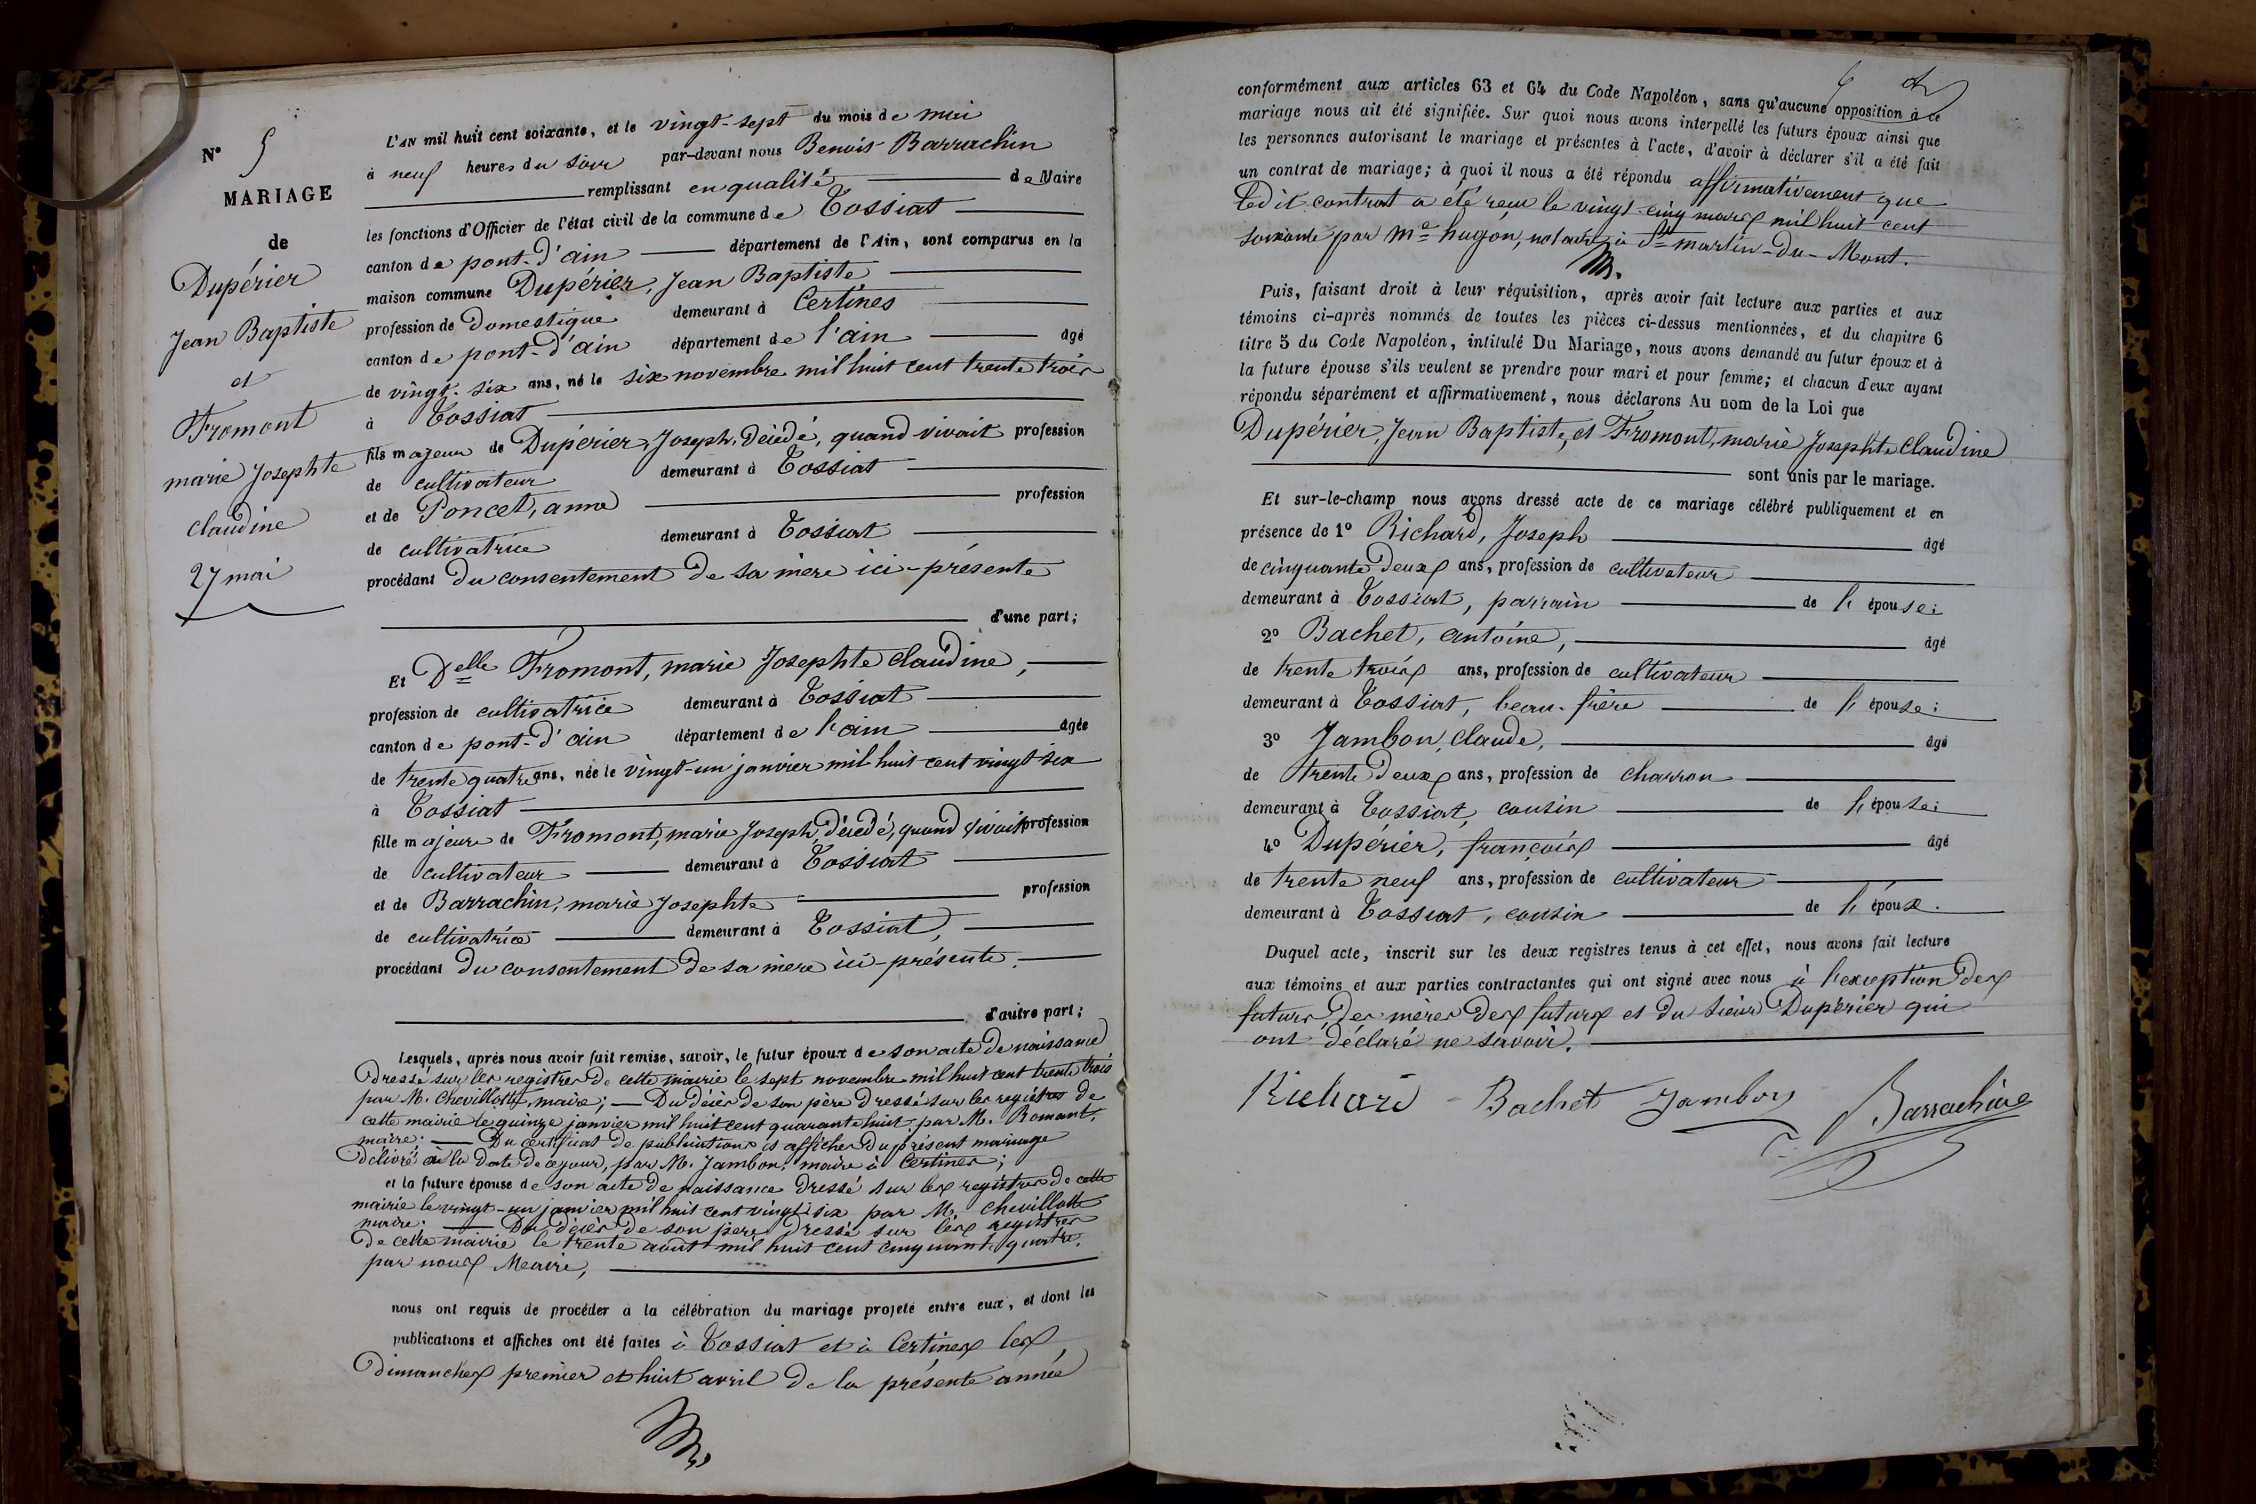 N° 5
MARIAGE
de
Dupérier
Jean Baptiste
et
Fromont
marie Josephte
claudine
27 mai
L'AN mil huit cent soixante, et le vingt-sept du mois de mai
à neuf heures du soir par-devant nous Benoit Barrachin
remplissant en qualité de Maire
les fonctions d'Officier de l'état civil de la commune de Tossiat
canton de pont-d'ain département de l'Ain, sont comparus en la
maison commune Dupérier, Jean Baptiste
profession de Domestique demeurant à Certines
canton de pont-d'ain département de l'ain âgé
de vingt-six ans, né le six novembre mil huit cent trente trois
à Tossiat
fils majeur de Dupérier, Joseph, décédé, quand vivait profession
de cultivateur demeurant à Tossiat
et de Poncet, anne profession
de cultivatrice demeurant à Tossiat
procédant du consentement de sa mère ici-présente
d'une part;
Et Delle Fromont, marie Josephte claudine,
profession de cultivatrice demeurant à Tossiat
canton de pont-d'ain département de l'ain âgée
de trente quatre ans, née le vingt-un janvier mil huit cent vingt six
à Tossiat
fille majeure de Fromont, marie Joseph, décédé, quand vivait profession
de cultivateur demeurant à Tossiat
et de Barrachin, marie Josephte profession
de cultivatrice demeurant à Tossiat,
procédant du consentement de sa mère ici-présente.
d'autre part;
Lesquels, après nous avoir fait remise, savoir, le futur époux de son acte de naissance
dressé sur les registres de cette mairie le sept novembre mil huit cent trente trois
par M. Chevillotte, maire; — Du décès de son père dressé sur les registres de
cette mairie le quinze janvier mil huit cent quarante huit, par M. Romant,
maire; — Du certificat de publications et affiches du présent mariage
délivré à la date de ce jour, par M. Jambon, maire à Certines;
et la future épouse de son acte de naissance dressé sur les registres de cette
mairie le vingt-un janvier mil huit cent vingt six par M. Chevillotte
maire; — Du décès de son père dressé sur les registres
de cette mairie le trente août mil huit cent cinquante quatre,
par nous Maire,
nous ont requis de procéder à la célébration du mariage projeté entre eux, et dont les
publications et affiches ont été faites à Tossiat et à Certines les
dimanches premier et huit avril de la présente année
6
conformément aux articles 63 et 64 du Code Napoléon, sans qu'aucune opposition à ce
mariage nous ait été signifiée. Sur quoi nous avons interpellé les futurs époux ainsi que
les personnes autorisant le mariage et présentes à l'acte, d'avoir à déclarer s'il a été fait
un contrat de mariage; à quoi il nous a été répondu affirmativement que
ledit contrat a été reçu le vingt-cinq mars mil huit cent
soixante par Me hugon, notaire à St martin-du-Mont.
Puis, faisant droit à leur réquisition, après avoir fait lecture aux parties et aux
témoins ci-après nommés de toutes les pièces ci-dessus mentionnées, et du chapitre 6
titre 5 du Code Napoléon, intitulé Du Mariage, nous avons demandé au futur époux et à
la future épouse s'ils veulent se prendre pour mari et pour femme; et chacun d'eux ayant
répondu séparément et affirmativement, nous déclarons Au nom de la Loi que
Dupérier, Jean Baptiste, et Fromont, marie Josephte Claudine
sont unis par le mariage.
Et sur-le-champ nous avons dressé acte de ce mariage célébré publiquement et en
présence de 1° Richard, Joseph âgé
de cinquante deux ans, profession de cultivateur
demeurant à Tossiat, parrain de l'épouse;
2° Bachet, antoine, âgé
de trente trois ans, profession de cultivateur
demeurant à Tossiat, beau-frère de l'épouse;
3° Jambon, claude, âgé
de trente deux ans, profession de charron
demeurant à Tossiat, cousin de l'épouse;
4° Dupérier, françois âgé
de trente neuf ans, profession de cultivateur
demeurant à Tossiat, cousin de l'époux.
Duquel acte, inscrit sur les deux registres tenus à cet effet, nous avons fait lecture
aux témoins et aux parties contractantes qui ont signé avec nous à l'exception des
futurs, des mères des futurs et du sieur Dupérier qui
ont déclaré ne savoir.
Richard Bachet Jambon Barrachin